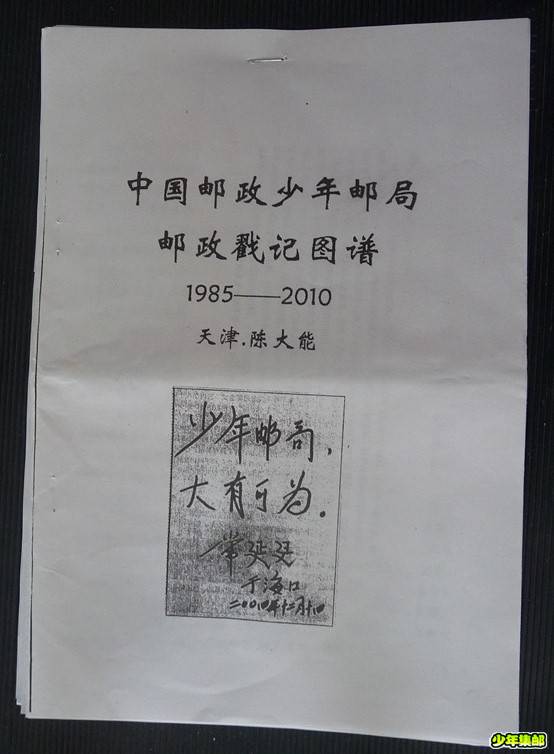 中国邮政少年邮局
邮政戳记图谱
1985——2010
天津.陈大能
少年邮局,
大有可为.
常延廷
于海口
二00八年十二月十日
少年集邮